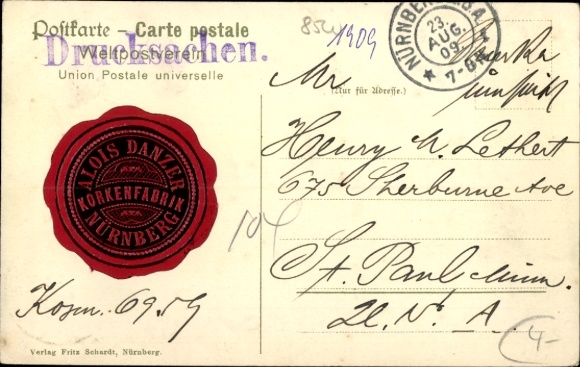 Postkarte – Carte postale
Weltpostverein
Drucksachen.
Union Postale universelle
85
1909
NÜRNBERG
23.
AUG.
09
7-8
(Nur für Adresse.)
Mr
Henry M. Lethert
675 Sherburne Ave
St. Paul Minn.
U. N. A.
ALOIS DANZER
KORKENFABRIK
NÜRNBERG
Kosm. 6959
4-
Verlag Fritz Schardt, Nürnberg.